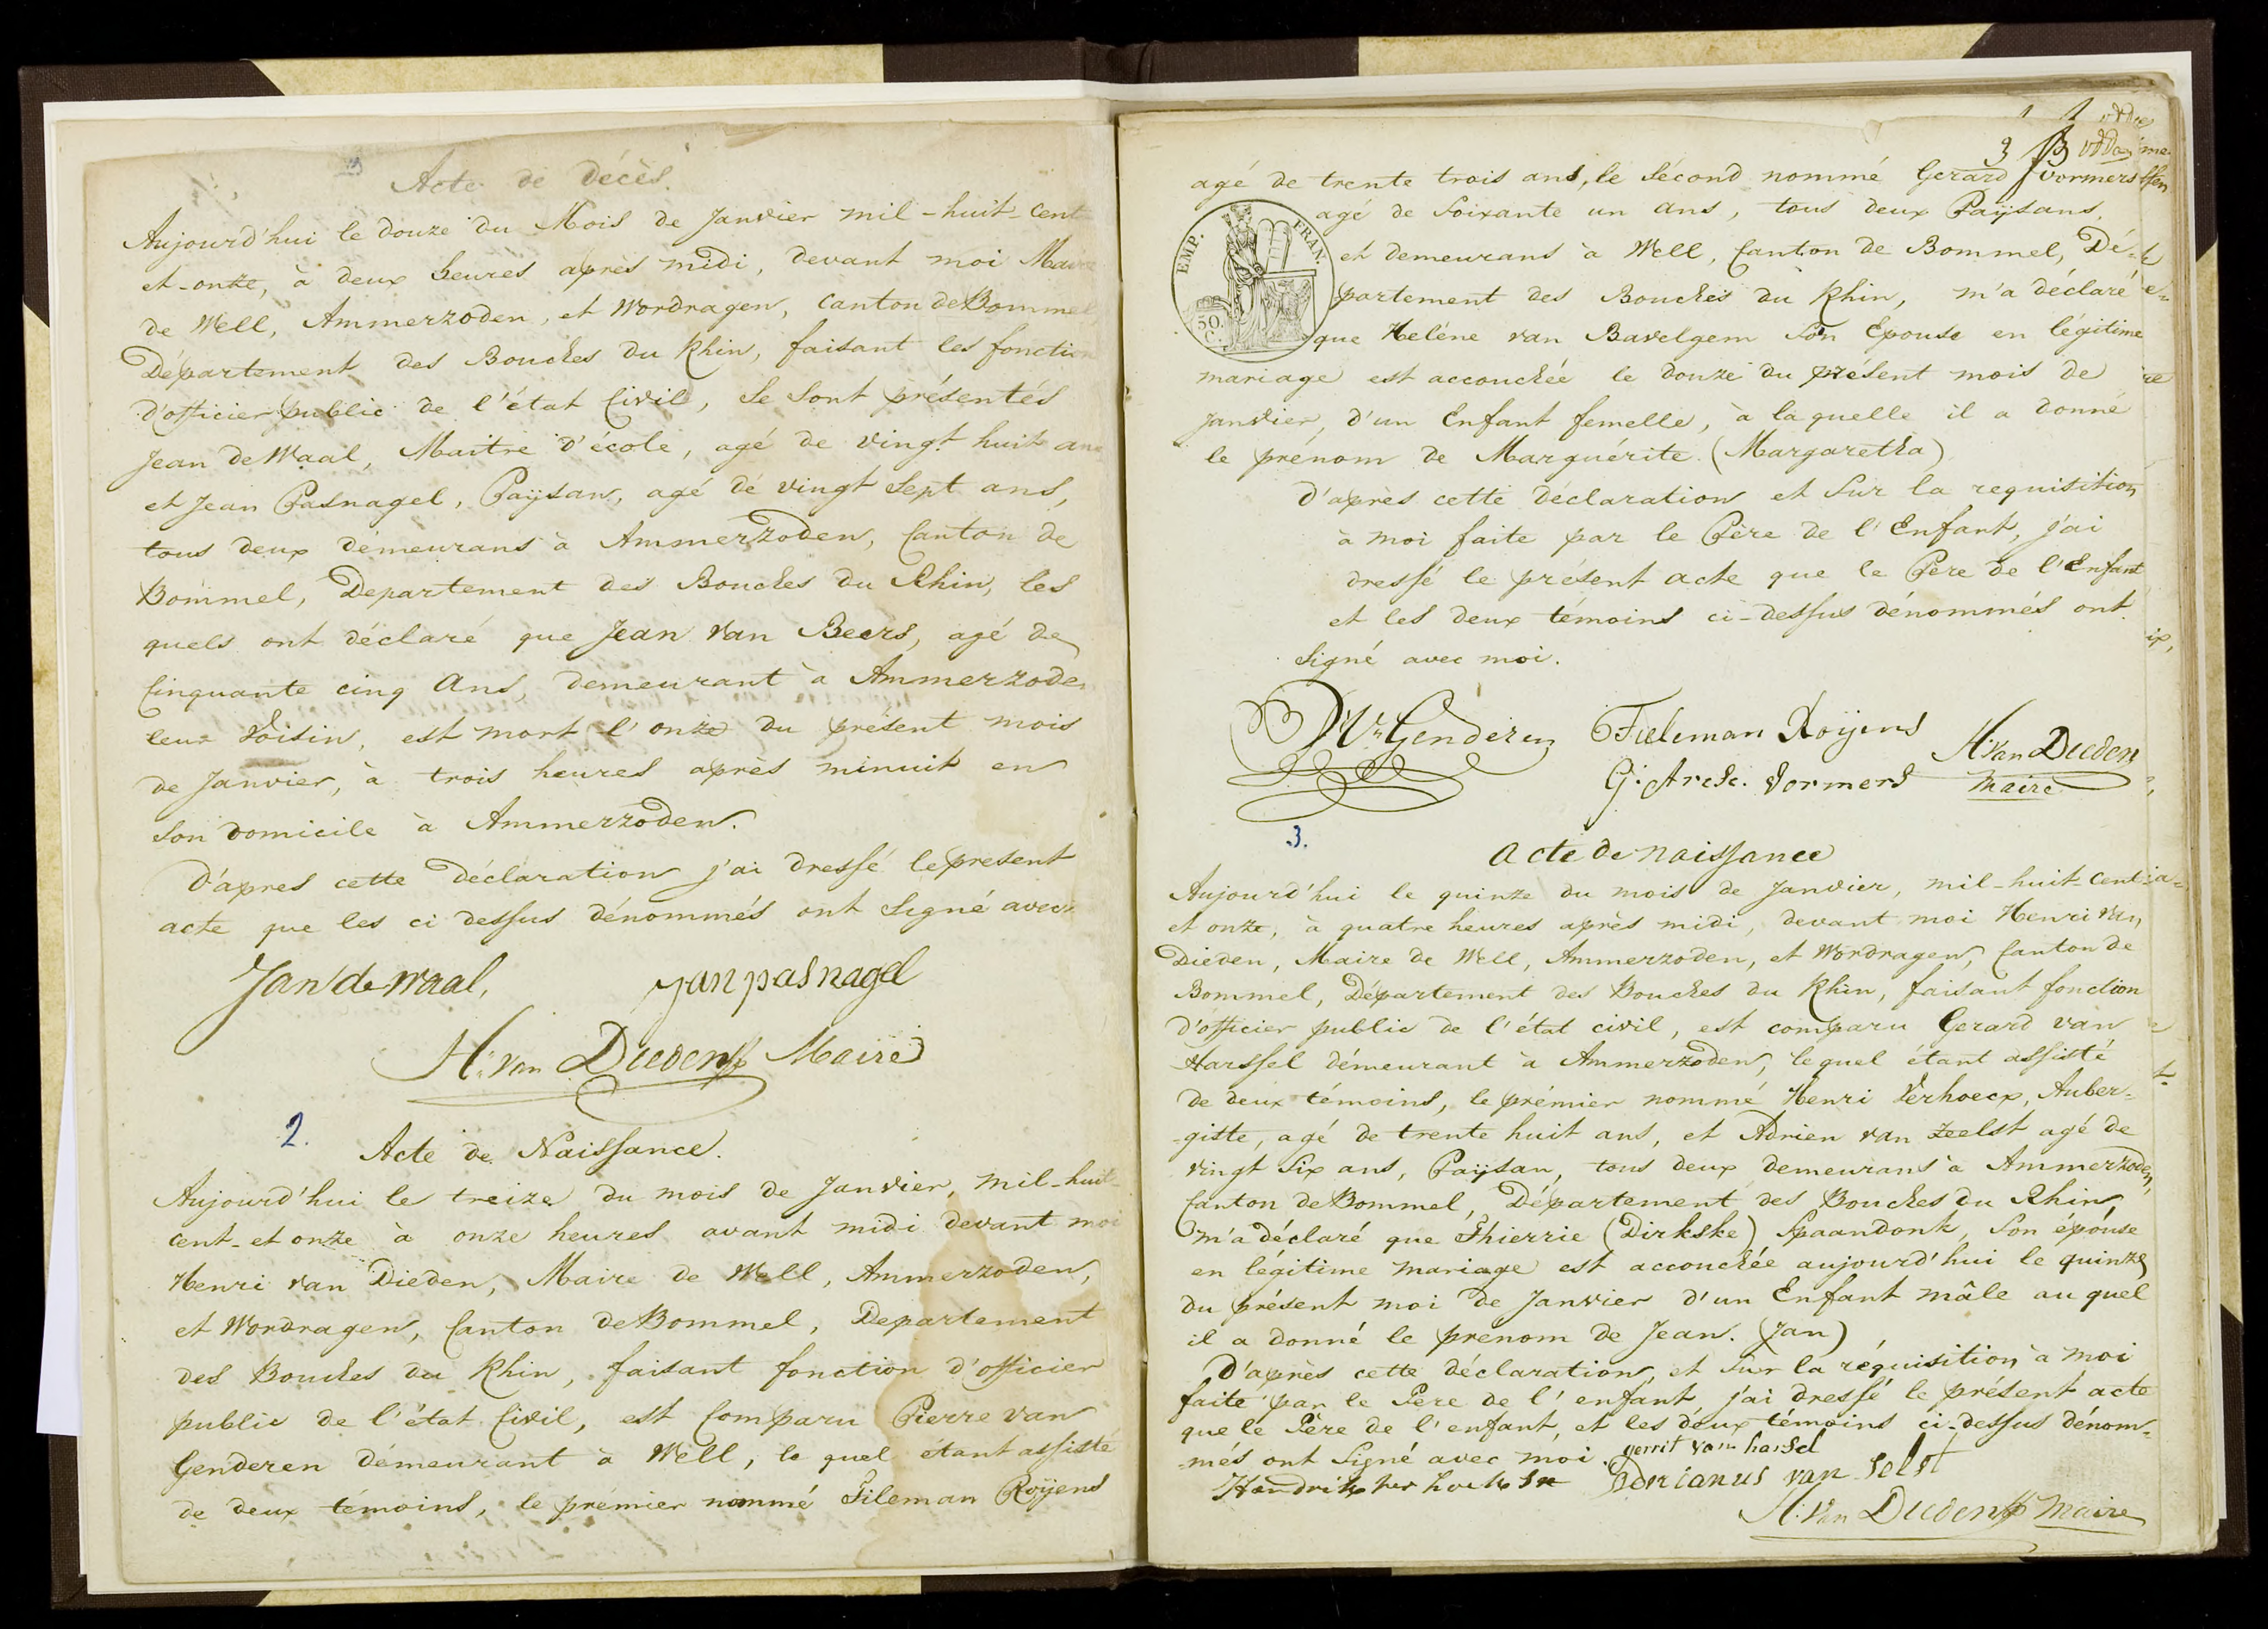 Acte de Décès.
Aujourd'hui le douze du Mois de Janvier mil-huit-cent
et-onze, à deux heures après midi, devant moi Maire
de Well, Ammerzoden, et Wordragen, Canton de Bommel
Département des Bouches du Rhin, faisant les fonction
d'officier public de l'état Civil, se sont présentés
Jean de Waal, Maitre d'école, agé de vingt huit ans
et Jean Pasnagel, Paÿsan, agé de vingt Sept ans,
tous deux démeurans à Ammerzoden, Canton de
Bommel, Departement des Bouches du Rhin, les
quels ont déclaré que Jean van Beers, agé de
Cinquante cinq Ans, demeurant à Ammerzoden
leur Voisin, est mort l'onze du présent mois
de Janvier, à trois heures après minuit en
son domicile à Ammerzoden.
D'apres cette Déclaration j'ai dressé le present
acte que les ci dessus dénommés ont signé avec
Jan de waal, Jan pasnagel
H: van Dieden Maire
2.
Acte de Naissance.
Aujourd'hui le treize du mois de Janvier, mil-huit-
cent-et onze à onze heures avant midi devant moi
Henri van Dieden, Maire de Well, Ammerzoden,
et Wordragen, Canton de Bommel, Departement
des Bouches du Rhin, faisant fonction d'officier
public de l'état Civil, est Comparu Pierre van
Genderen démeurant à Well, le quel étant assisté
de deux témoins, le prémier nommé Tileman Roÿens
3
agé de trente trois ans, le sécond nommé Gerard vormers
agé de Soixante un ans, tous deux Paÿsans,
EMP. FRAN.
50. C.
et demeurans à Well, Canton de Bommel, Dé-
partement des Bouches du Rhin, m'a déclaré
que Heléne van Bavelgem son Epouse en légitime
mariage est accouchée le douze du présent mois de
Janvier, d'un Enfant femelle, à la quelle il a donné
le prénom de Marguérite. (Margaretha)
D'après cette déclaration et sur la requisition
à moi faite par le Père de l'Enfant, j'ai
dressé le présent acte que le Père de l'Enfant
et les deux témoins ci-dessus dénommés ont
signé avec moi.
P Vn Genderen Tieleman Roijens H. van Dieden
G: Vormers Maire
3.
Acte de naissance
Aujourd'hui le quinze du mois de Janvier, mil-huit-cent-
et onze, à quatre heures après midi, devant moi Henri van
Dieden, Maire de Well, Ammerzoden, et Wordragen, Canton de
Bommel, Département des Bouches du Rhin, faisant fonction
d'officier public de l'état civil, est comparu Gerard van
Harssel démeurant à Ammerzoden, lequel étant assisté
de deux témoins, le prémier nommé Henri Verhoecx, Auber-
-giste, agé de trente huit ans, et Adrien van Zeelst agé de
vingt Six ans, Paÿsan, tous deux demeurans à Ammerzoden,
Canton de Bommel, Département des Bouches du Rhin,
m'a déclaré que Thierrie (Dirkske) Spaandonk, son epouse
en légitime mariage est accouchée aujourd'hui le quinze
du présent moi de Janvier d'un Enfant mâle au quel
il a donné le prenom de Jean. (Jan)
D'après cette déclaration, et sur la réquisition à moi
faite par le Père de l'enfant j'ai dressé le présent acte
que le Père de l'enfant, et les deux témoins ci-dessus dénom-
-més ont signé avec moi. gerrit van harsel
Hendrik Adrianus van Selst
H. van Dieden Maire